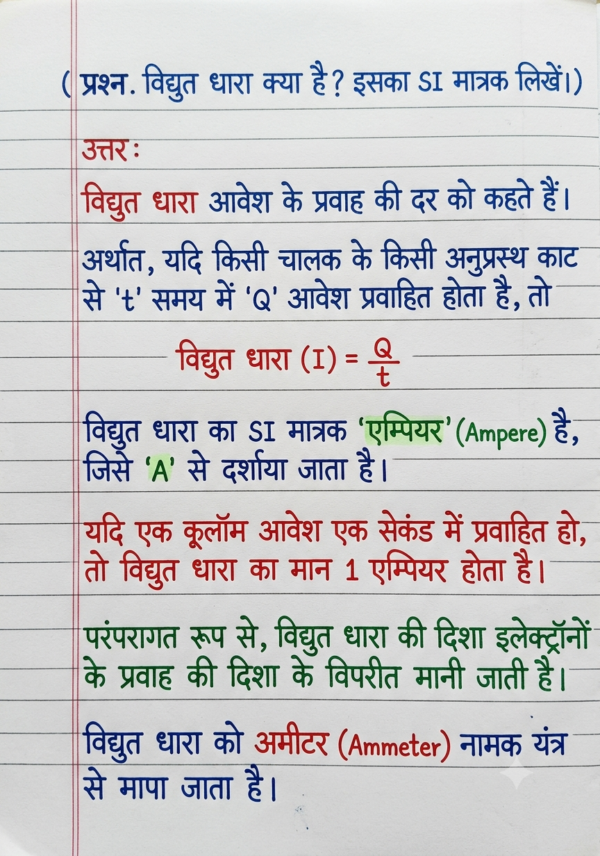 ( प्रश्न. विद्युत धारा क्या है? इसका SI मात्रक लिखें।)
उत्तर:
विद्युत धारा आवेश के प्रवाह की दर को कहते हैं।
अर्थात, यदि किसी चालक के किसी अनुप्रस्थ काट
से 't' समय में 'Q' आवेश प्रवाहित होता है, तो
विद्युत धारा (I) = Q/t
विद्युत धारा का SI मात्रक 'एम्पियर' (Ampere) है,
जिसे 'A' से दर्शाया जाता है।
यदि एक कूलॉम आवेश एक सेकंड में प्रवाहित हो,
तो विद्युत धारा का मान 1 एम्पियर होता है।
परंपरागत रूप से, विद्युत धारा की दिशा इलेक्ट्रॉनों
के प्रवाह की दिशा के विपरीत मानी जाती है।
विद्युत धारा को अमीटर (Ammeter) नामक यंत्र
से मापा जाता है।